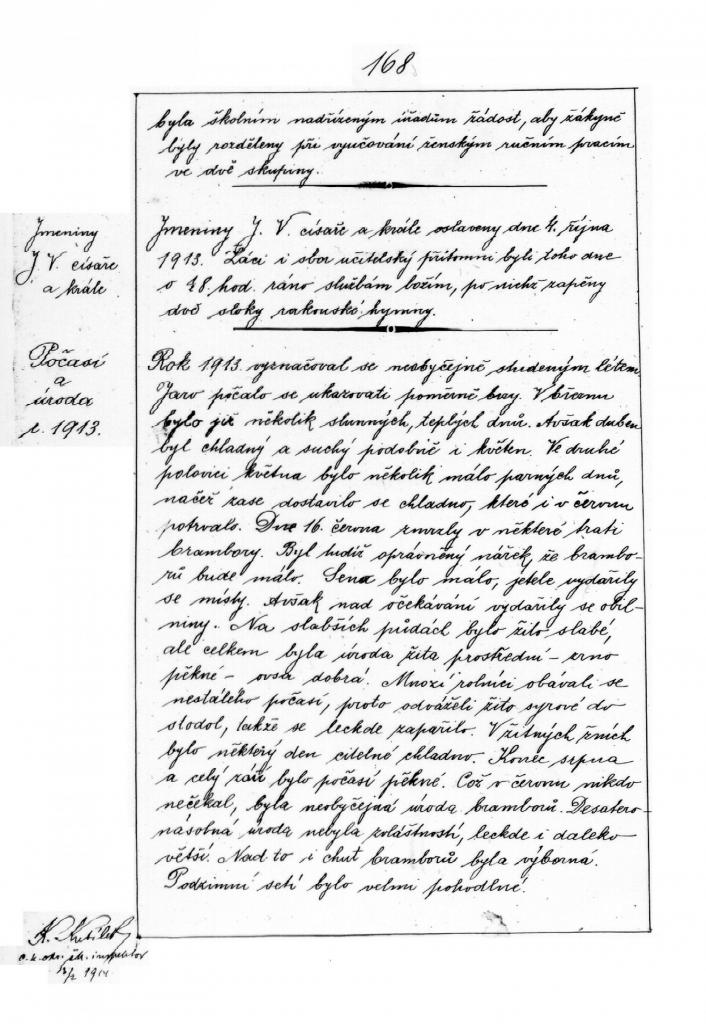 168
byla školním nadřízeným úřadům žádost, aby žákyně
byly rozděleny při vyučování ženským ručním pracím
ve dvě skupiny.
Jmeniny
J. V. císaře
a krále
Jmeniny J. V. císaře a krále oslaveny dne 4. října
1913. Žáci i sbor učitelský přítomni byli toho dne
o ¾8. hod. ráno službám božím, po nichž zapěny
dvě sloky rakouské hymny.
Počasí
a
úroda
r. 1913.
Rok 1913. vyznačoval se neobyčejně studeným létem
Jaro počalo se ukazovati poměrně brzy. V březnu
bylo již několik slunných, teplých dnů. Avšak duben
byl chladný a suchý podobně i květen. Ve druhé
polovici května bylo několik málo parných dnů,
načež zase dostavilo se chladno, které i v červnu
potrvalo. Dne 16. června zmrzly v některé trati
brambory. Byl tudíž oprávněný nářek, že brambo-
rů bude málo. Sena bylo málo, jetele vydařily
se místy. Avšak nad očekávání vydařily se obil-
niny. Na slabších půdách bylo žito slabé,
ale celkem byla úroda žita prostřední – zrno
pěkné – ovsa dobrá. Mnozí rolníci obávali se
nestálého počasí, proto odváželi žito syrové do
stodol, takže se leckde zapařilo. V žitných žních
bylo některý den citelné chladno. Konec srpna
a celý září bylo počasí pěkné. Což v červnu nikdo
nečekal, byla neobyčejná úroda bramborů. Desatero-
násobná úroda nebyla zvláštností, leckde i daleko
větší. Nad to i chuť bramborů byla výborná.
Podzimní setí bylo velmi pohodlné.
K.
c. k. okr. šk. inspektor
1914